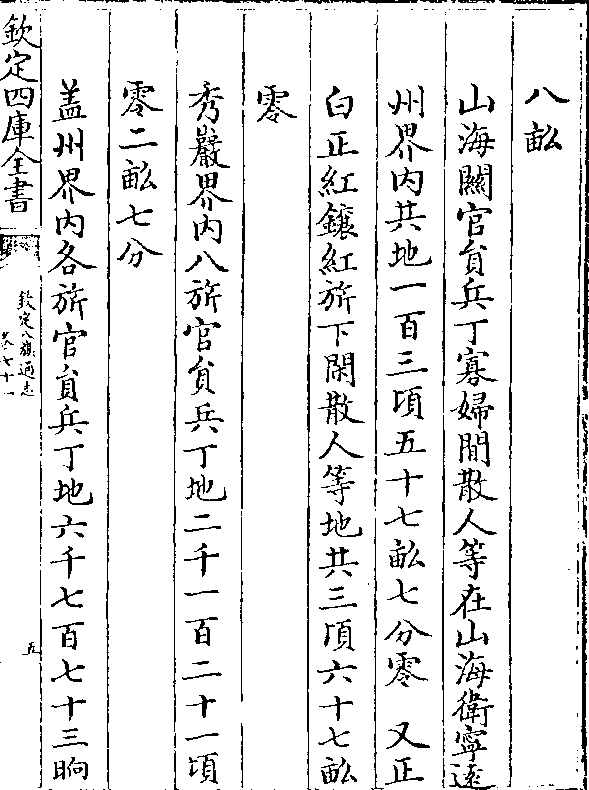 八畝
山海關官員兵丁寡婦閒散人等在山海衛寧逺
州界内共地一百三頃五十七畝七分零　又正
白正紅鑲紅旂下閑散人等地共三頃六十七畝
零
秀巖界内八旂官員兵丁地二千一百二十一頃
零二畝七分
盖州界内各旂官員兵丁地六千七百七十三晌
欽定四庫全書
欽定八旗通志
卷七十一
五